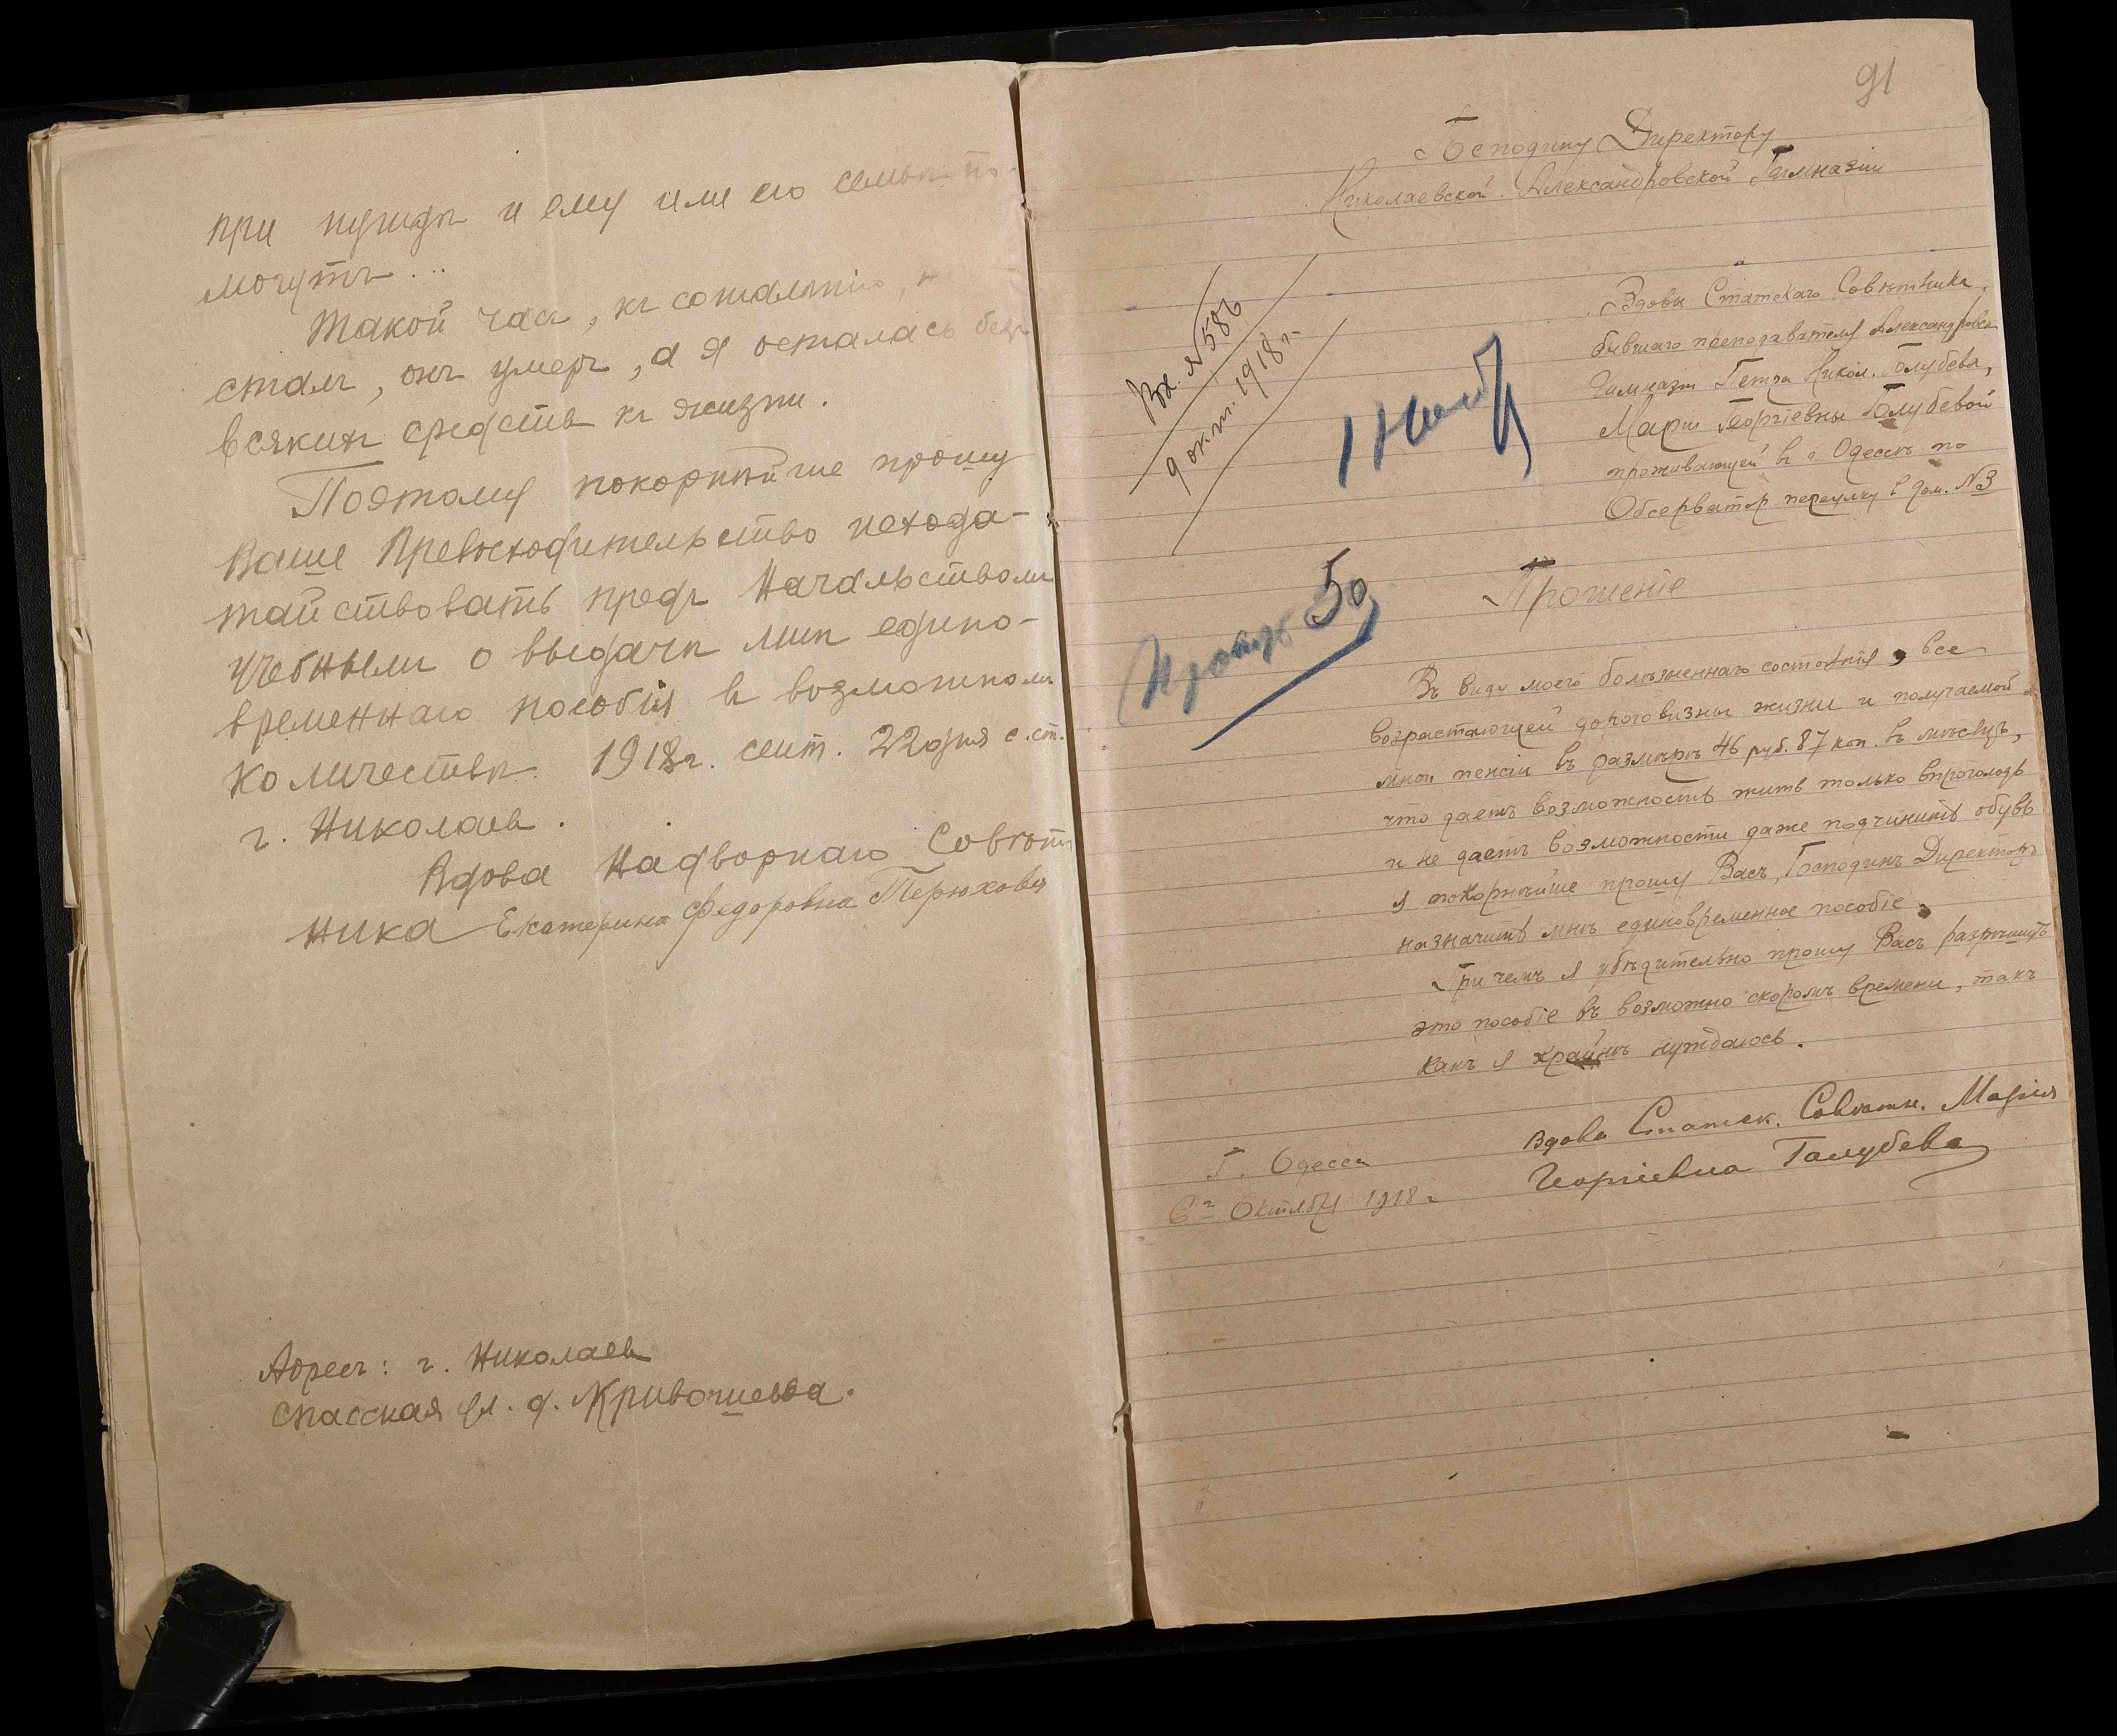 при нуждѣ и ему или его семьѣ по-
могутъ...
Такой часъ, къ сожалѣнію,
сталъ, онъ умеръ, а я осталась безъ
всякихъ средствъ къ жизни.
Поэтому покорнѣйше прошу
Ваше Превосходительство исхода-
тайствовать предъ Начальствомъ
учебнымъ о выдачѣ мнѣ едино-
временнаго пособія въ возможномъ
количествѣ. 1918г. сент. 22 дня с. ст.
г. Николаевъ.
Вдова Надворнаго Совѣт-
ника Екатерина Федоровна Терюхова
Адресъ: г. Николаевъ
Спасская ул. д. Кривошеева.
91
Господину Директору
Николаевской Александровской Гимназіи
Вх. №586
9 окт. 1918 г.
Вдовы Статскаго Совѣтника,
бывшаго преподавателя Александровск
Гимназіи Петра Никол. Голубева,
Маріи Георгіевны Голубевой
проживающей в г. Одессѣ по
Обсерватор переулку в дом. №3
50
Прошеніе
Въ виду моего болѣзненнаго состоянія, все
возрастающей дороговизны жизни и получаемой
мною пенсіи въ размѣрѣ 46 руб. 87 коп. въ мѣсяцъ,
что даетъ возможность жить только впроголодь
и не даетъ возможности даже подчинить обувь
я покорнѣйше прошу Васъ, Господинъ Директоръ
назначить мнѣ единовременное пособіе.
При чемъ я убѣдительно прошу Васъ разрѣшить
это пособіе въ возможно скоромъ времени, такъ
какъ я крайнѣ нуждаюсь.
Вдова Статск. Совѣтн. Марія
Георгіевна Голубева
Г. Одесса
6го Октября 1918 г